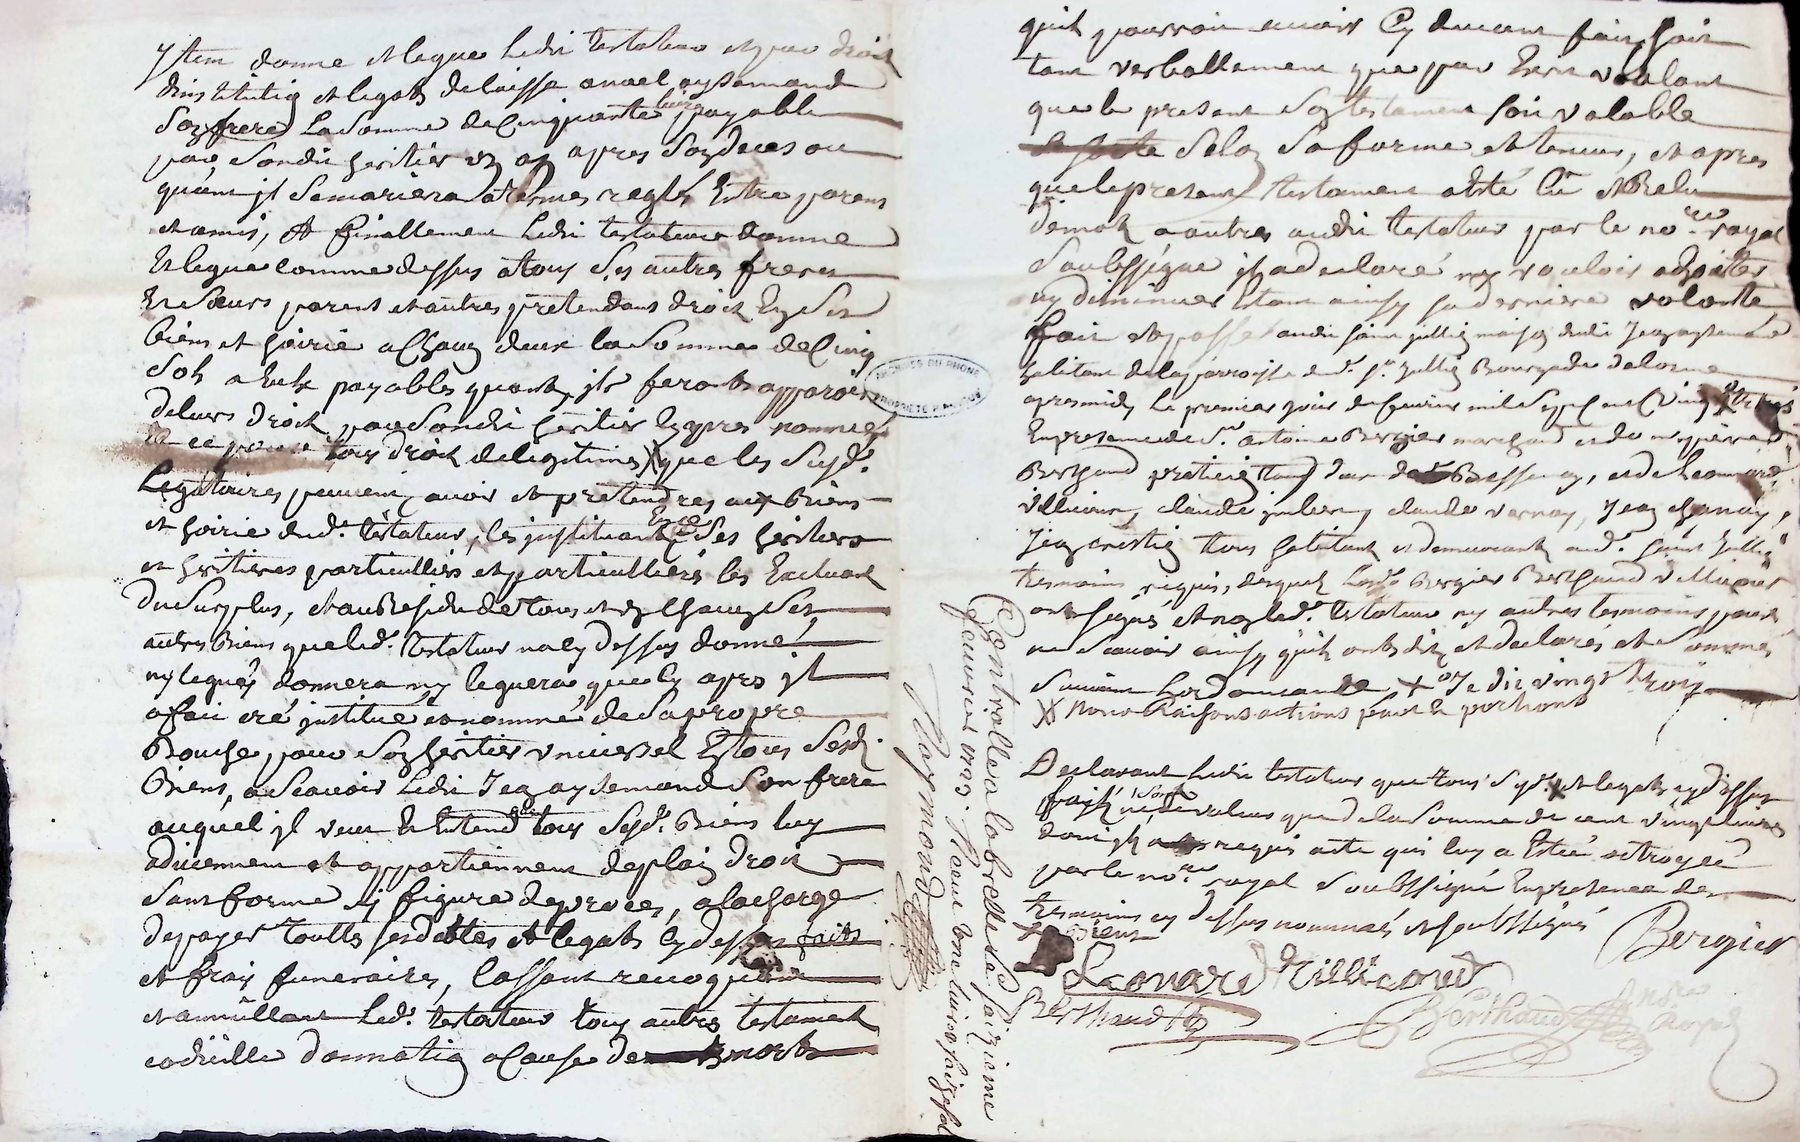 ytem donne et legue ledit testateur et par droit
dinstitution et legats delaisse a noel aysemand
son frere la somme de cinquante livres payable
par sondit heritier un an apres son deces ou
quant jl se mariera a termes reglés entre parens
et amis, et finallement ledit testateur donne
et legue comme dessus a tous ses autres freres
et sœurs parens et autres pretendans droit en ses
biens et hoirie a chacun deux la somme de cinq
sols a eux payables quant jls feront apparoir
de leurs droits par sondit heritier cy apres nommé
et ce pour tous droits de legitimes X que les susd.
legataires peuvent avoir et pretendres aux biens
et hoirie dud. testateur, les justituant ses heritiers
et heritieres particulliers et particullieres les excluant
du surplus, et au residu de tous et un chacuns ses
autres biens que led. testateur na cy dessus donné
ny legués donnera ny leguera que cy apres jl
a fait cré justitué et nommé de sa propre
bouche, pour son heritier universel en tous sesd.
biens, a scavoir ledit jean aysemand son frere
auquel jl veut et entend que tous sesd. biens luy
adviennent et appartiennent de plain droit
sans forme ny figure de proces, a la charge
de payer touttes ses debtes et legats cy dessus faits
et frais funeraires, cassant revoquant
et annullant led. testateur tous autres testament
codicille donnation a cause de morts
qu'il pourroit avoir cy devant fait soit
tant verballement que par escrit voulant
que le present son testament soit valable
selon sa forme et teneur, et apres
que le present testament a esté lu et relu
de mot a autres audit testateur par le nore royal
soubssigné jl a declaré ny vouloir adjouter
ny diminuer estant ainsy sa derniere volonté
fait et passé audit saint jullien maison dudit jean aysemand
habitant de la parroisse dud. st jullien
apres midy le premier jour de fevrier mil sept cent vingt trois
en presence de sr antoine bergier marchand et de
berthaud praticien tous deux de bessenay, et de leonard
villicour, claude claude vernay, jean
jean tous habitant et demeurants aud. saint jullien
tesmoins requis, desquels lesd. bergier berthaud villicour
ont signés et non led. testateur ny autres tesmoins pour
ne scavoir ainsy quils ont dit et declarés et sommés
suivant lordonnance, + je dis vingt trois
X noms raisons actions parts et portions
Declarant ledit testateur que tous sesd. X et legats cy dessus
faits ne sont de valeur que de la somme de cent vingt livres
dont jl a requis acte qui luy a esté octroyé
par le nore royal soubssigné en presence des
tesmoins cy dessus nommés et soubssignés
X biens
Bergier
Leonard Villicour
Berthaud
Berthaud
nore
royal
Controllé a labresle le seizieme
fevrier 1723. Receu une livre seize sols
Raymond
ARCHIVES DU RHONE
PROPRIÉTÉ PUBLIQUE